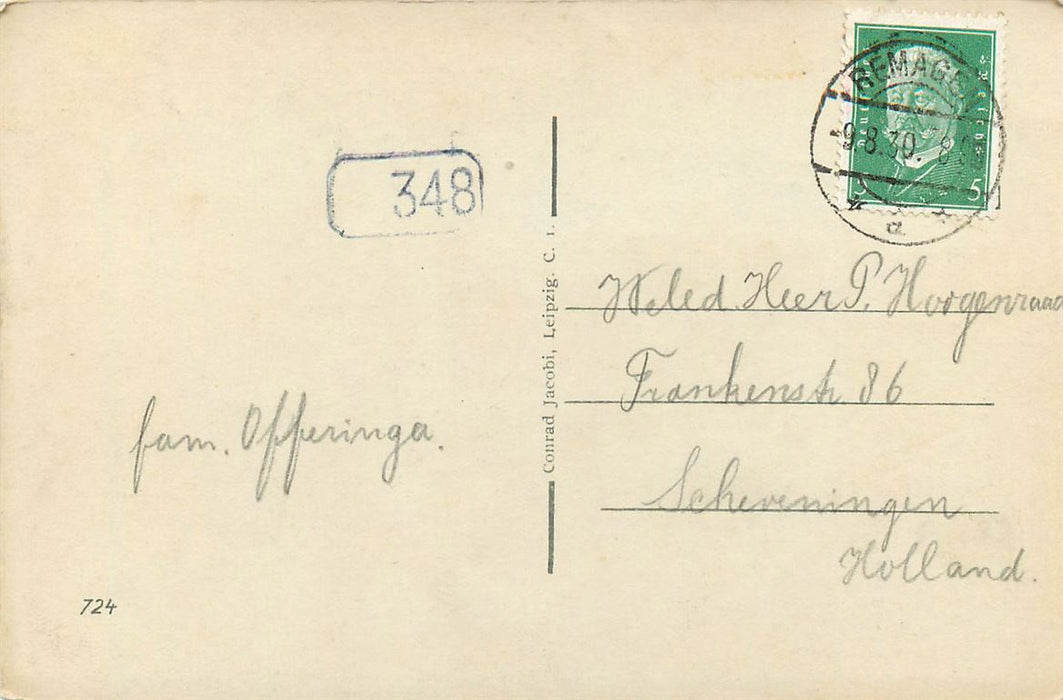 348
fam. Offeringa.
724
Conrad Jacobi, Leipzig. C. 1.
REMAGEN
9.8.30. 8
5
WEled Heer P. Hoogenraad
Frankenstr 86
Scheveningen
Holland.